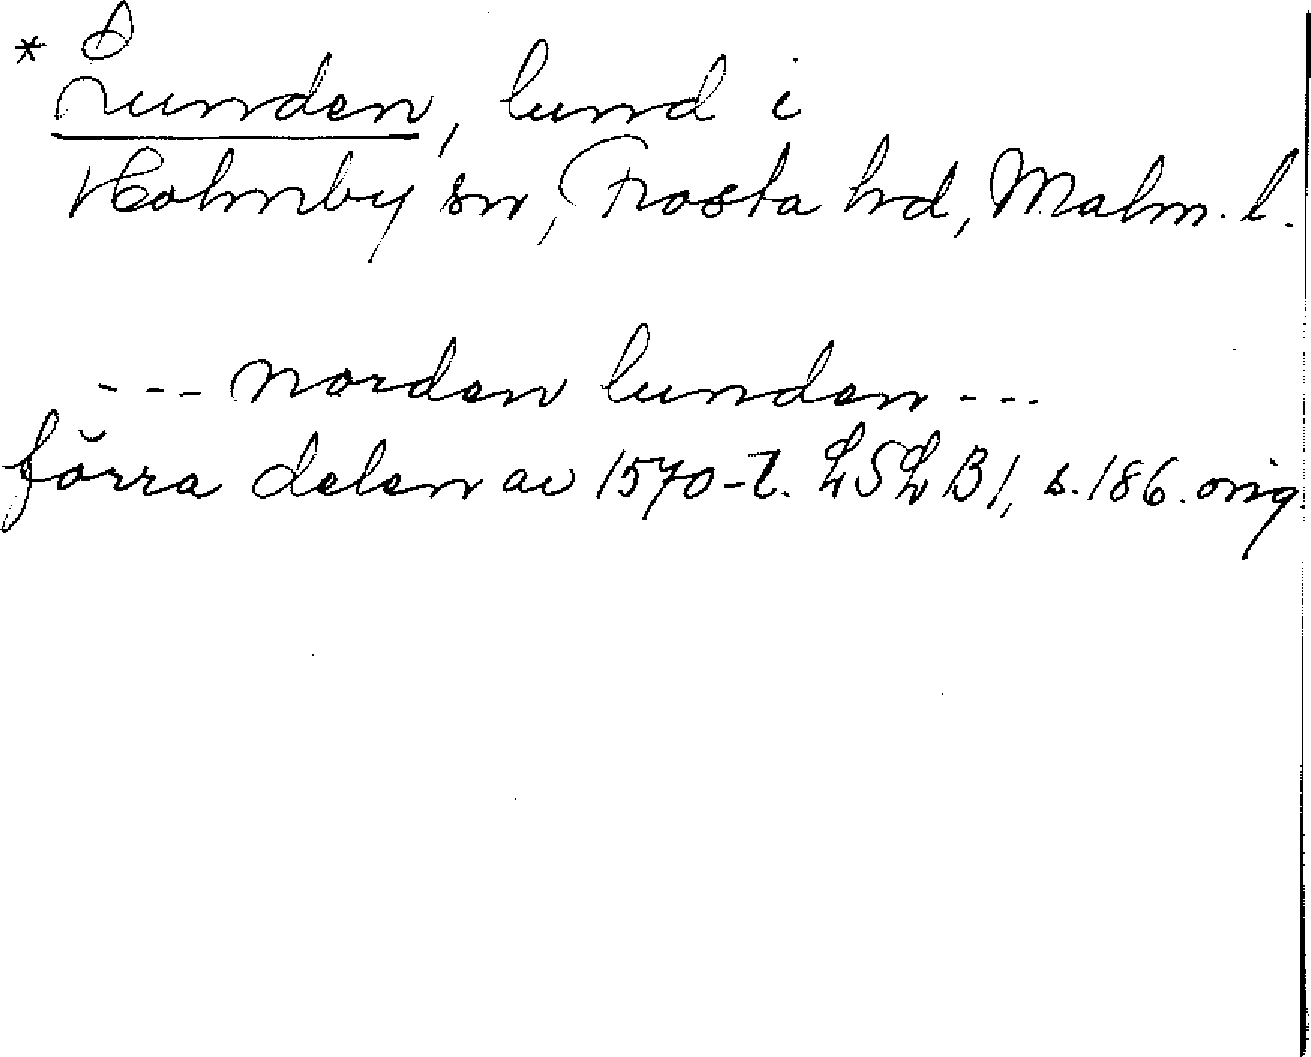 * Lunden, lund i
Holmby sn, Frosta hd, Malm. l.
--- norden lunden ---
förra delen av 1570-t. LSLB1, s. 186. orig.